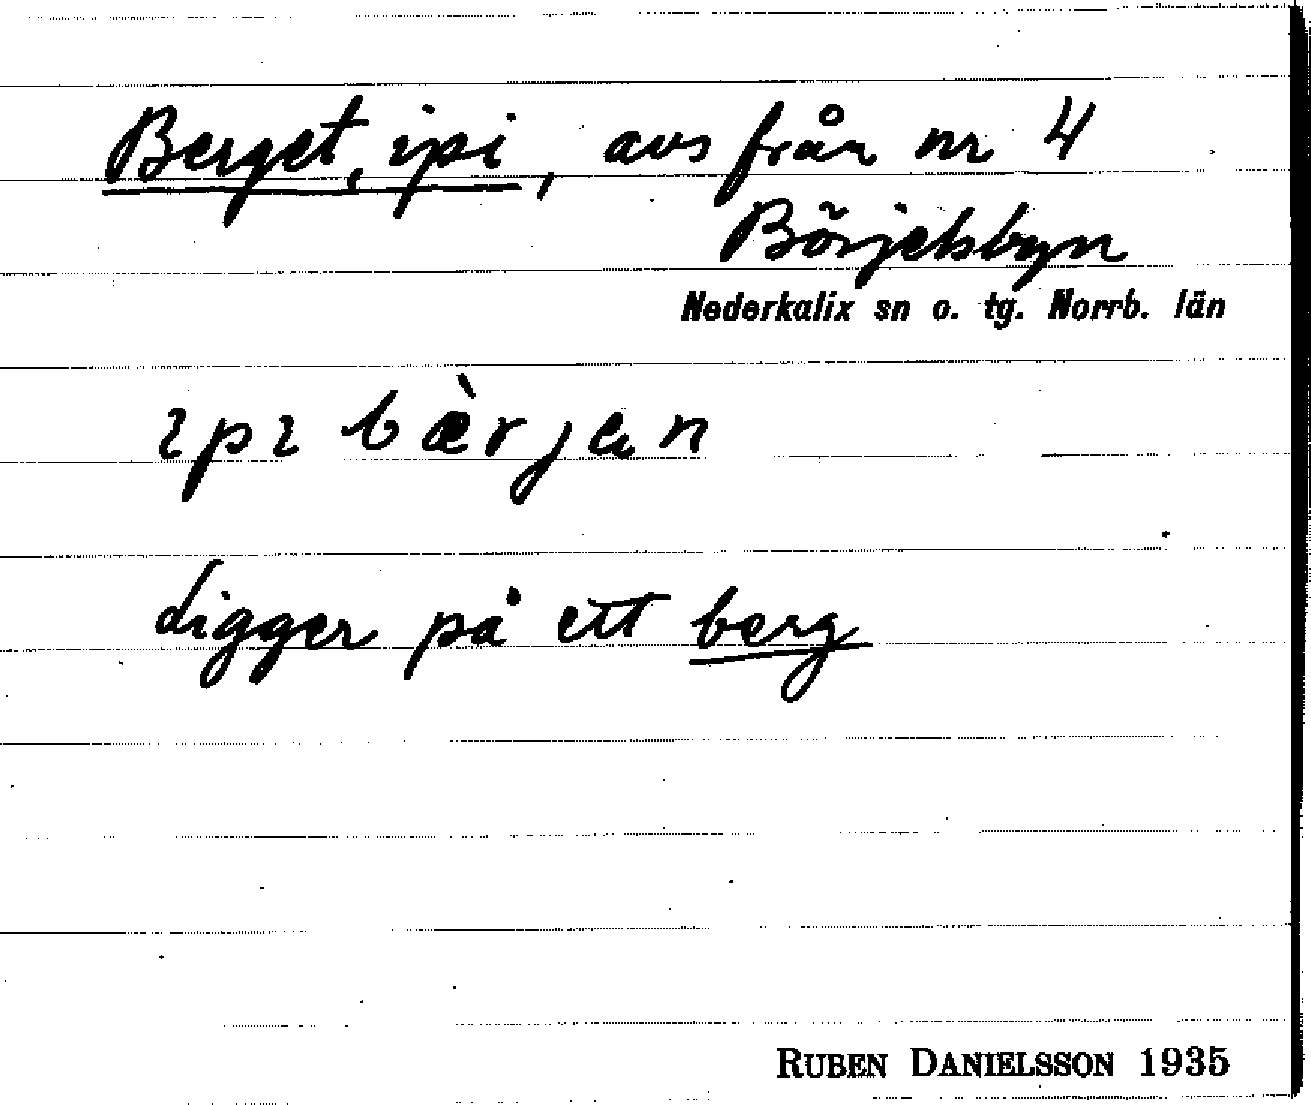 Berget, ipi, avs från nr 4
Börjelsbyn
Nederkalix sn o. tg. Norrb. län
ɩpɩ bæ̀rjan
Ligger på ett berg
RUBEN DANIELSSON 1935